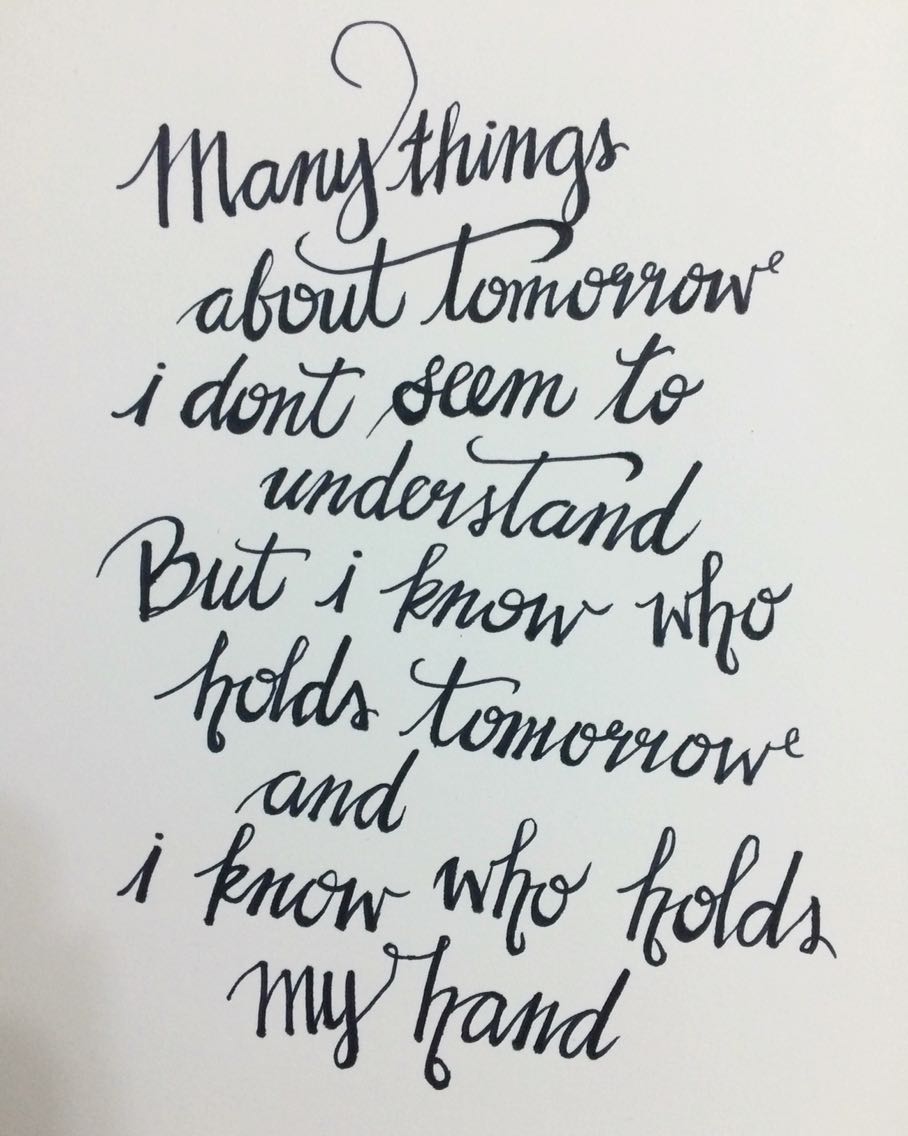 Many things
about tomorrow
i dont seem to
understand
But i know who
holds tomorrow
and
i know who holds
my hand